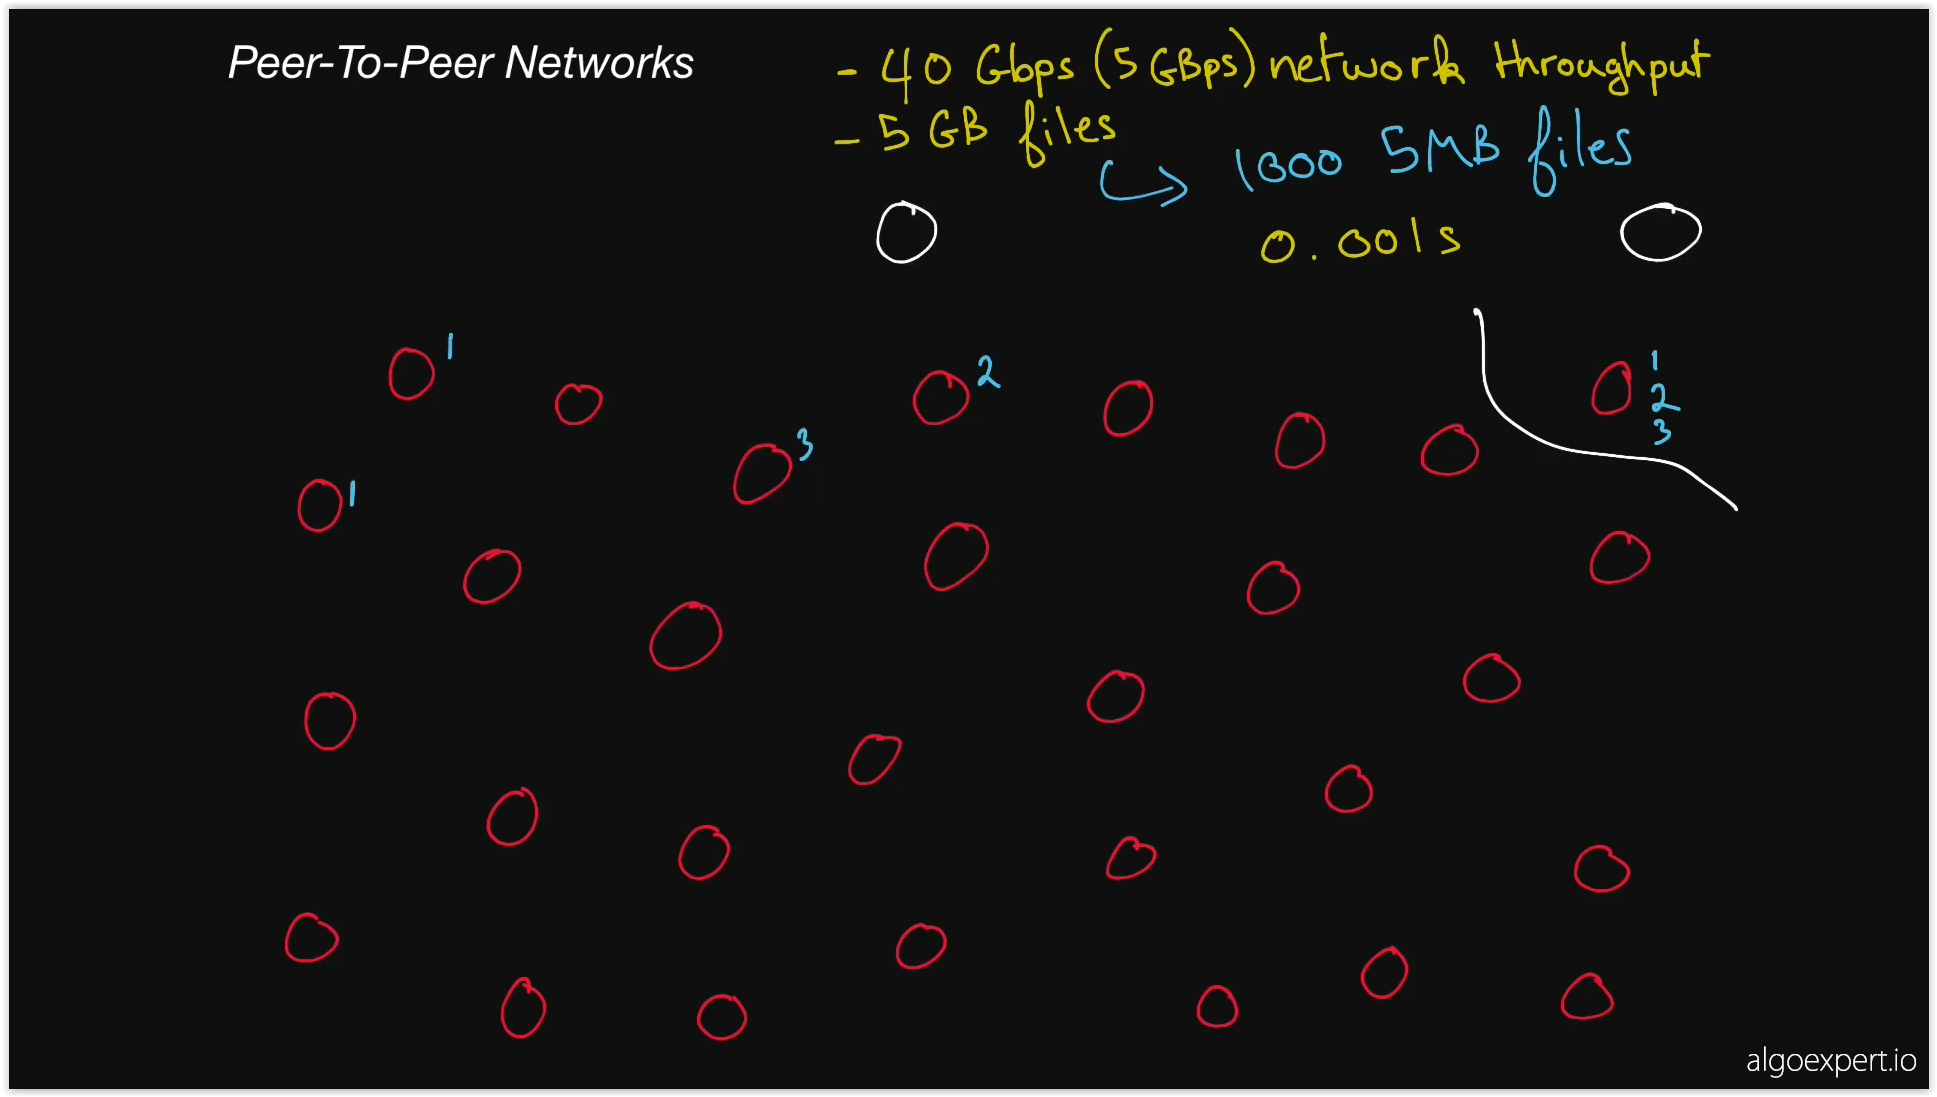 Peer-To-Peer Networks
- 40 Gbps (5 GBps) network throughput
- 5 GB files
1000 5MB files
0.001s
1
2
1
2
3
3
1
algoexpert.io